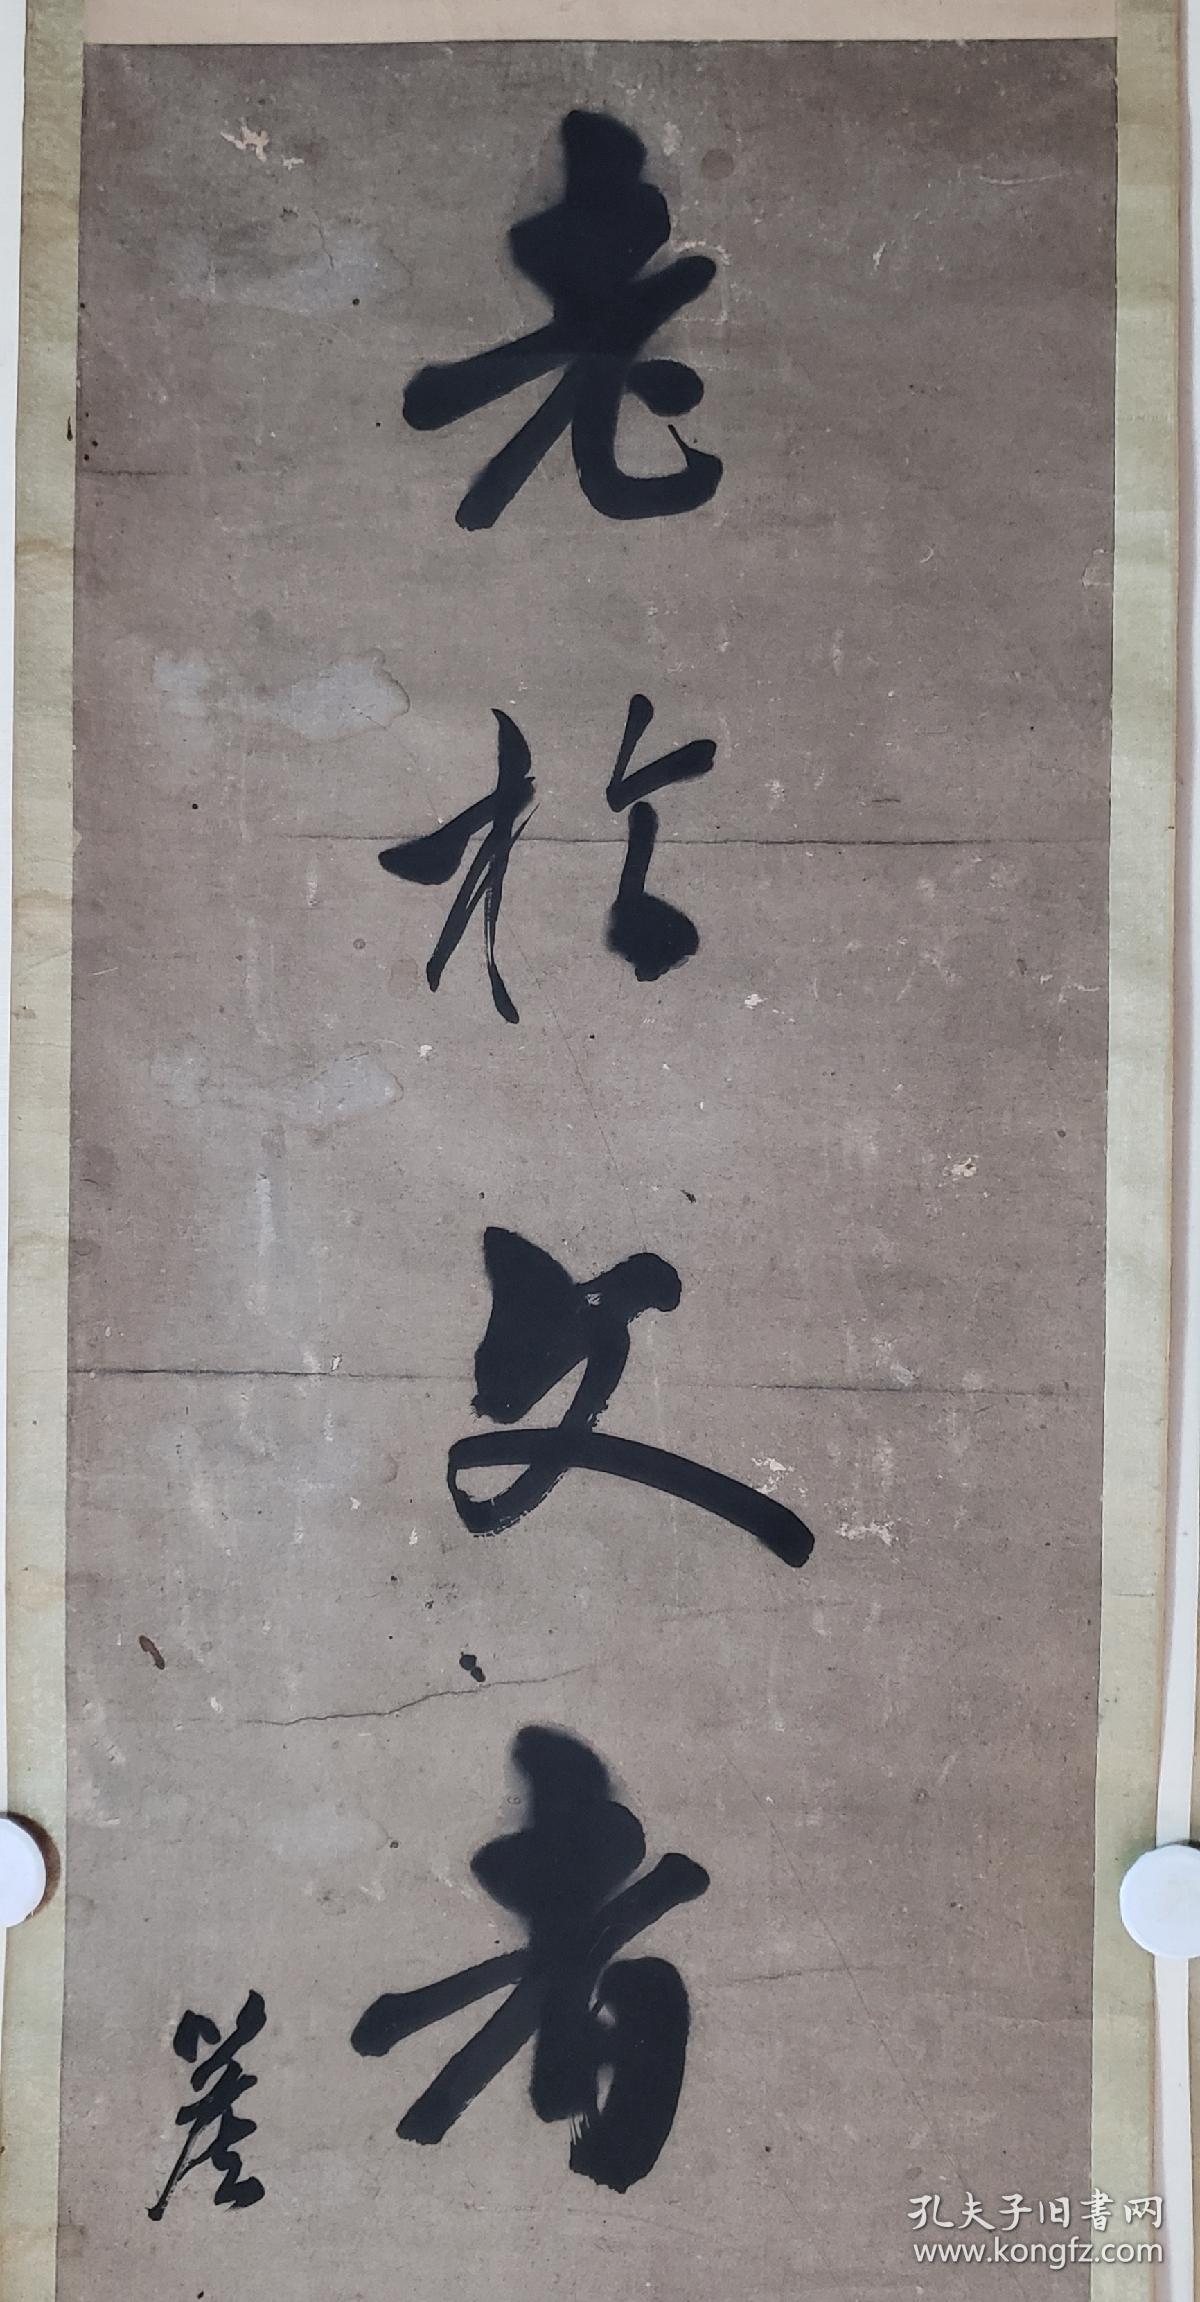 老於文者
孔夫子旧書网
www.kongfz.com